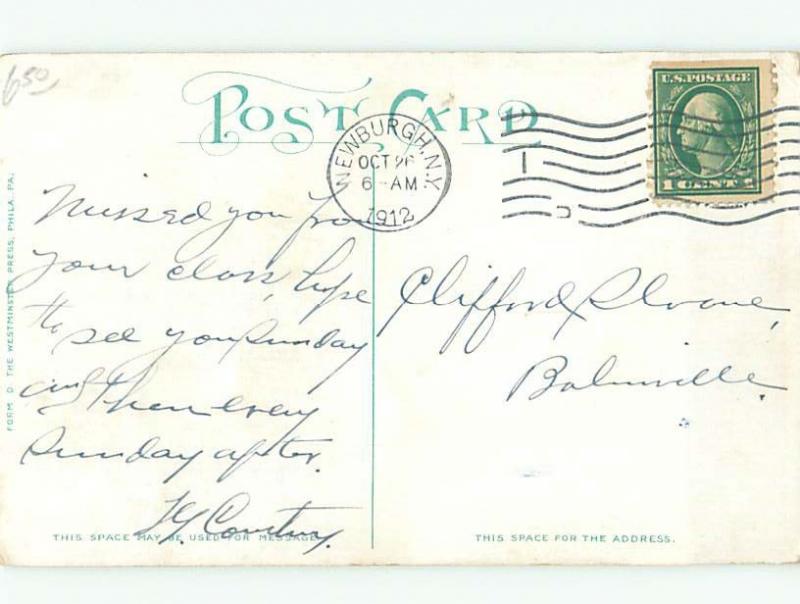 6 50
POST CARD
U.S. POSTAGE
1 CENT 1
NEWBURGH, N.Y.
OCT 26
6 - AM
1912
Missed you from
your class, hope
to see you Sunday
and then every
Sunday after.
Clifford Sloane,
Balmville.
FORM D THE WESTMINSTER PRESS, PHILA. PA.
THIS SPACE MAY BE USED FOR MESSAGE.
THIS SPACE FOR THE ADDRESS.